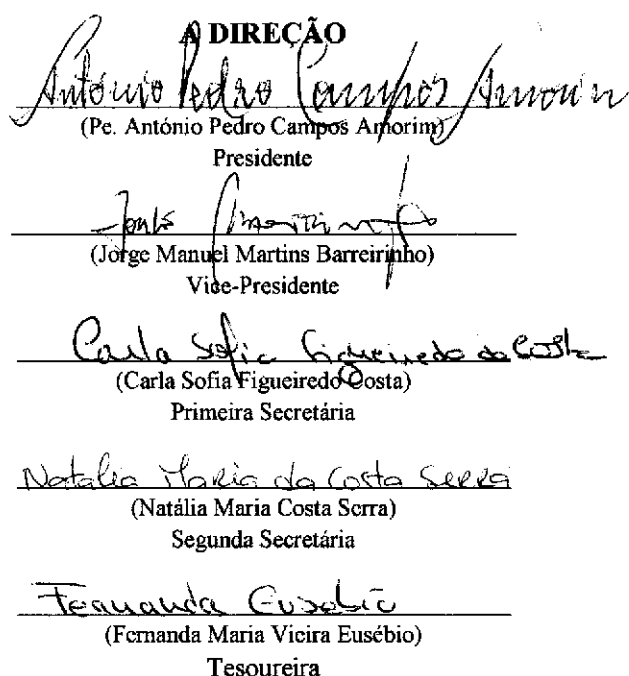 A DIREÇÃO
António Pedro Campos Amorim
(Pe. António Pedro Campos Amorim)
Presidente
Jorge Barreirinho
(Jorge Manuel Martins Barreirinho)
Vice-Presidente
Carla Sofia Figueiredo da Costa
(Carla Sofia Figueiredo Costa)
Primeira Secretária
Natália Maria da Costa Serra
(Natália Maria Costa Serra)
Segunda Secretária
Fernanda Eusébio
(Fernanda Maria Vieira Eusébio)
Tesoureira